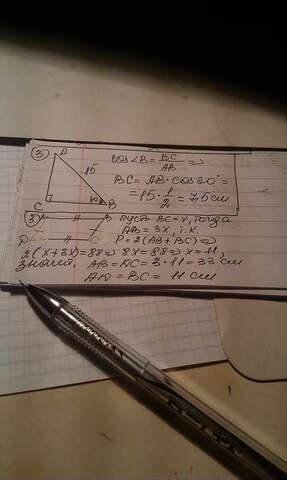 ③ A
15
C 60 B
cos∠B = BC/AB ⇒
BC = AB · cos 60° =
= 15 · 1/2 = 7,5 см
② A B
D C
пусть BC = x, тогда
AB = 3x, т.к.
P = 2(AB+BC) ⇒
2(x+3x)=88 ⇒ 8x=88 ⇒ x=11,
значит, AB = DC = 3·11 = 33 см
AD = BC = 11 см